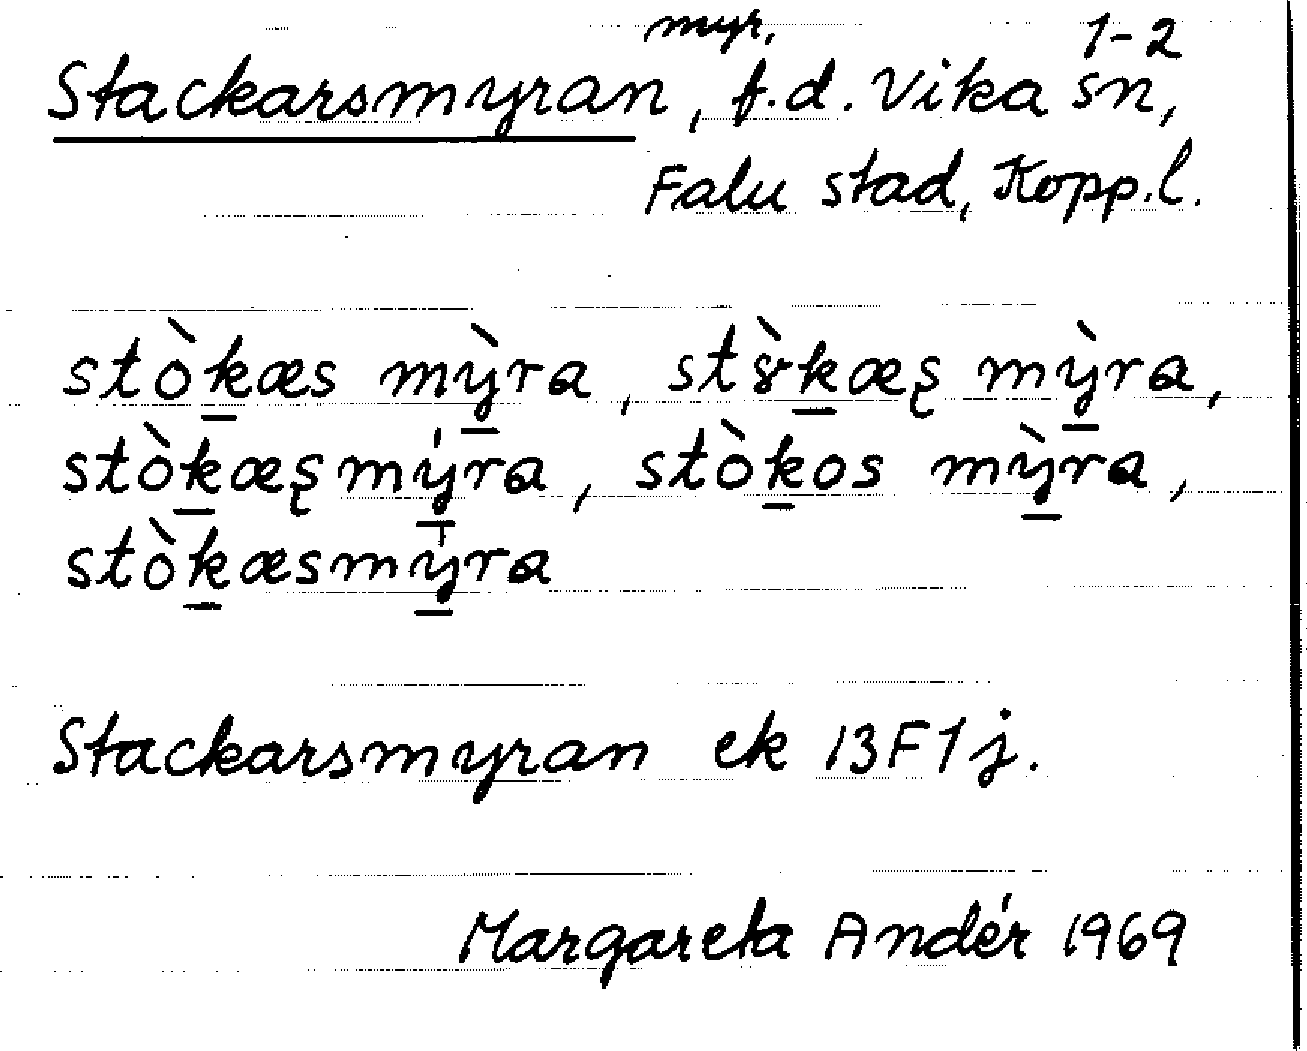 myr. 1-2
Stackarsmyran, f.d. Vika sn,
Falu stad, Kopp.l.
stòk̲æs mỳ̲ra, st8̀k̲æş mỳ̲ra,
stòk̲æşmý̲ra, stòk̲os mỳ̲ra,
stòk̲æsmy̲ra
Stackarsmyran ek 13F1j.
Margareta Andér 1969